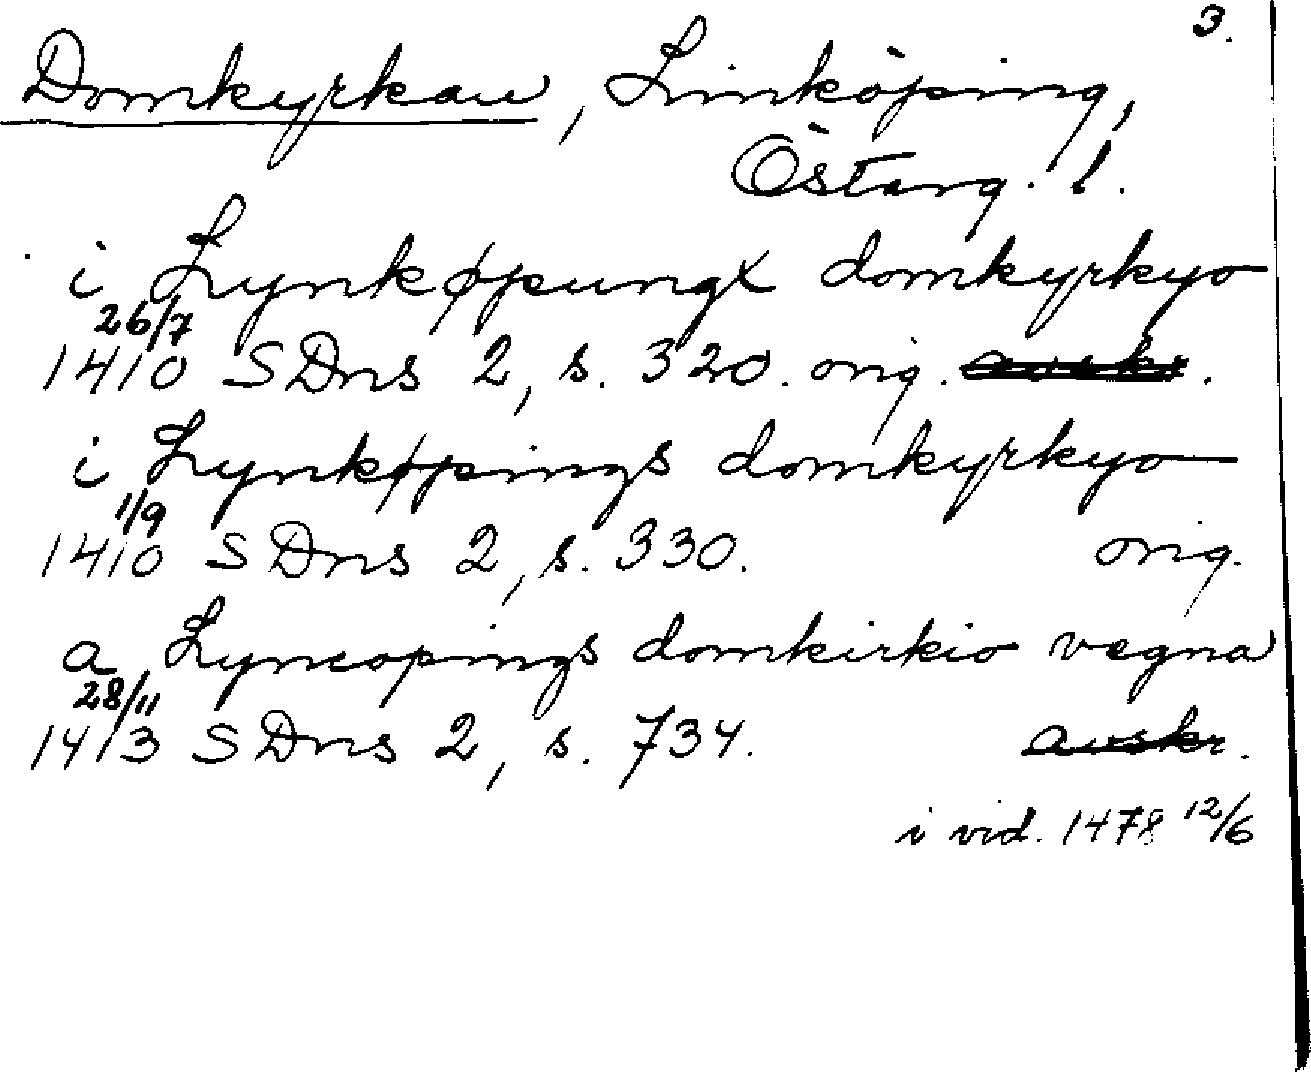 3.
Domkyrkan, Linköping,
Östерg. l.
i Lynkøpungx domkyrkyo
26/7
1410 SDns 2, s. 320. orig. avskr.
i Lynkøpings domkyrkyo
1/9
1410 SDns 2, s. 330. orig.
a Lyncopings domkirkio vegna
28/11
1413 SDns 2, s. 734. avskr.
i vid. 1478 12/6